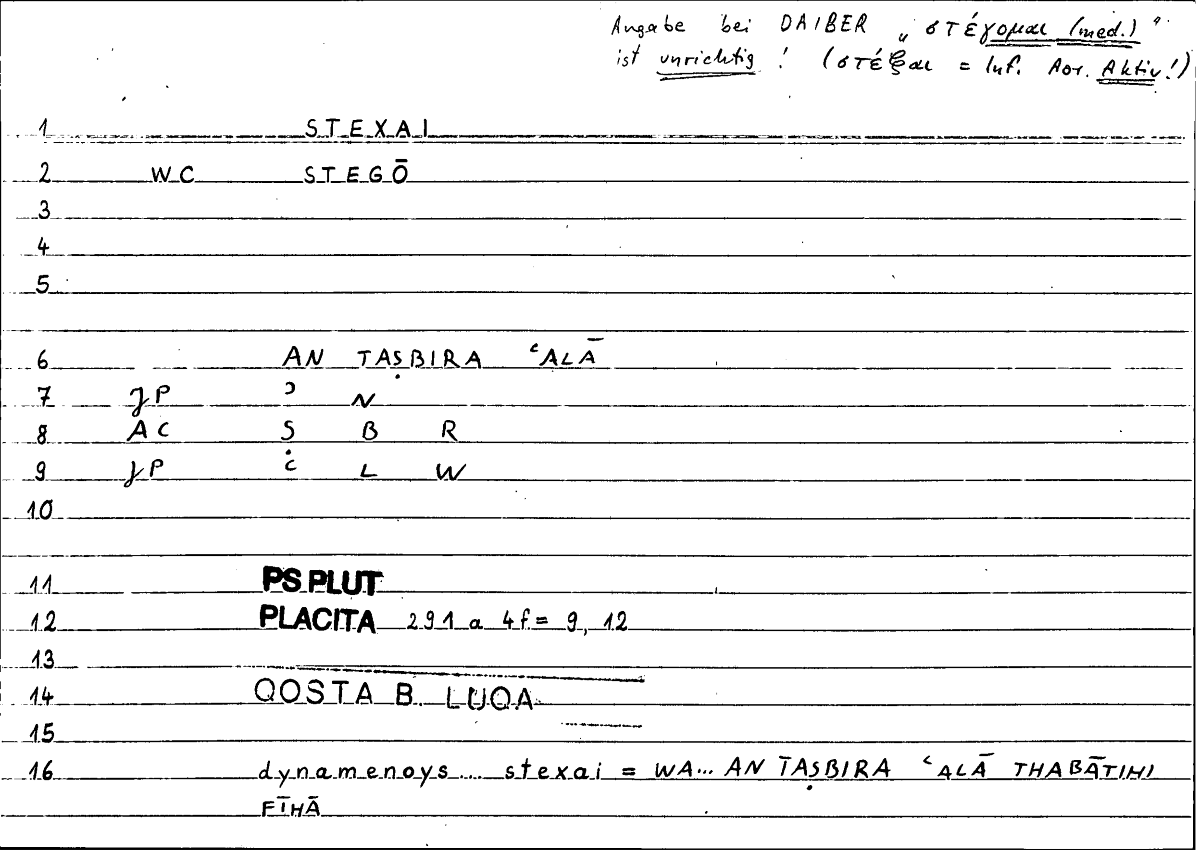 Angabe bei DAIBER „στέγομαι (med.)“
ist unrichtig! (στέξαι = Inf. Aor. Aktiv!)
1 STEXAI
2 WC STEGŌ
3
4
5
6 AN TAṢBIRA ʿALĀ
7 JP ʾ N
8 AC Ṣ B R
9 JP ʿ L W
10
11 PS PLUT
12 PLACITA 291 a 4f = 9, 12
13
14 QOSTA B. LUQA
15
16 dynamenoys... stexai = WA... AN TAṢBIRA ʿALĀ THABĀTIHI
FĪHĀ